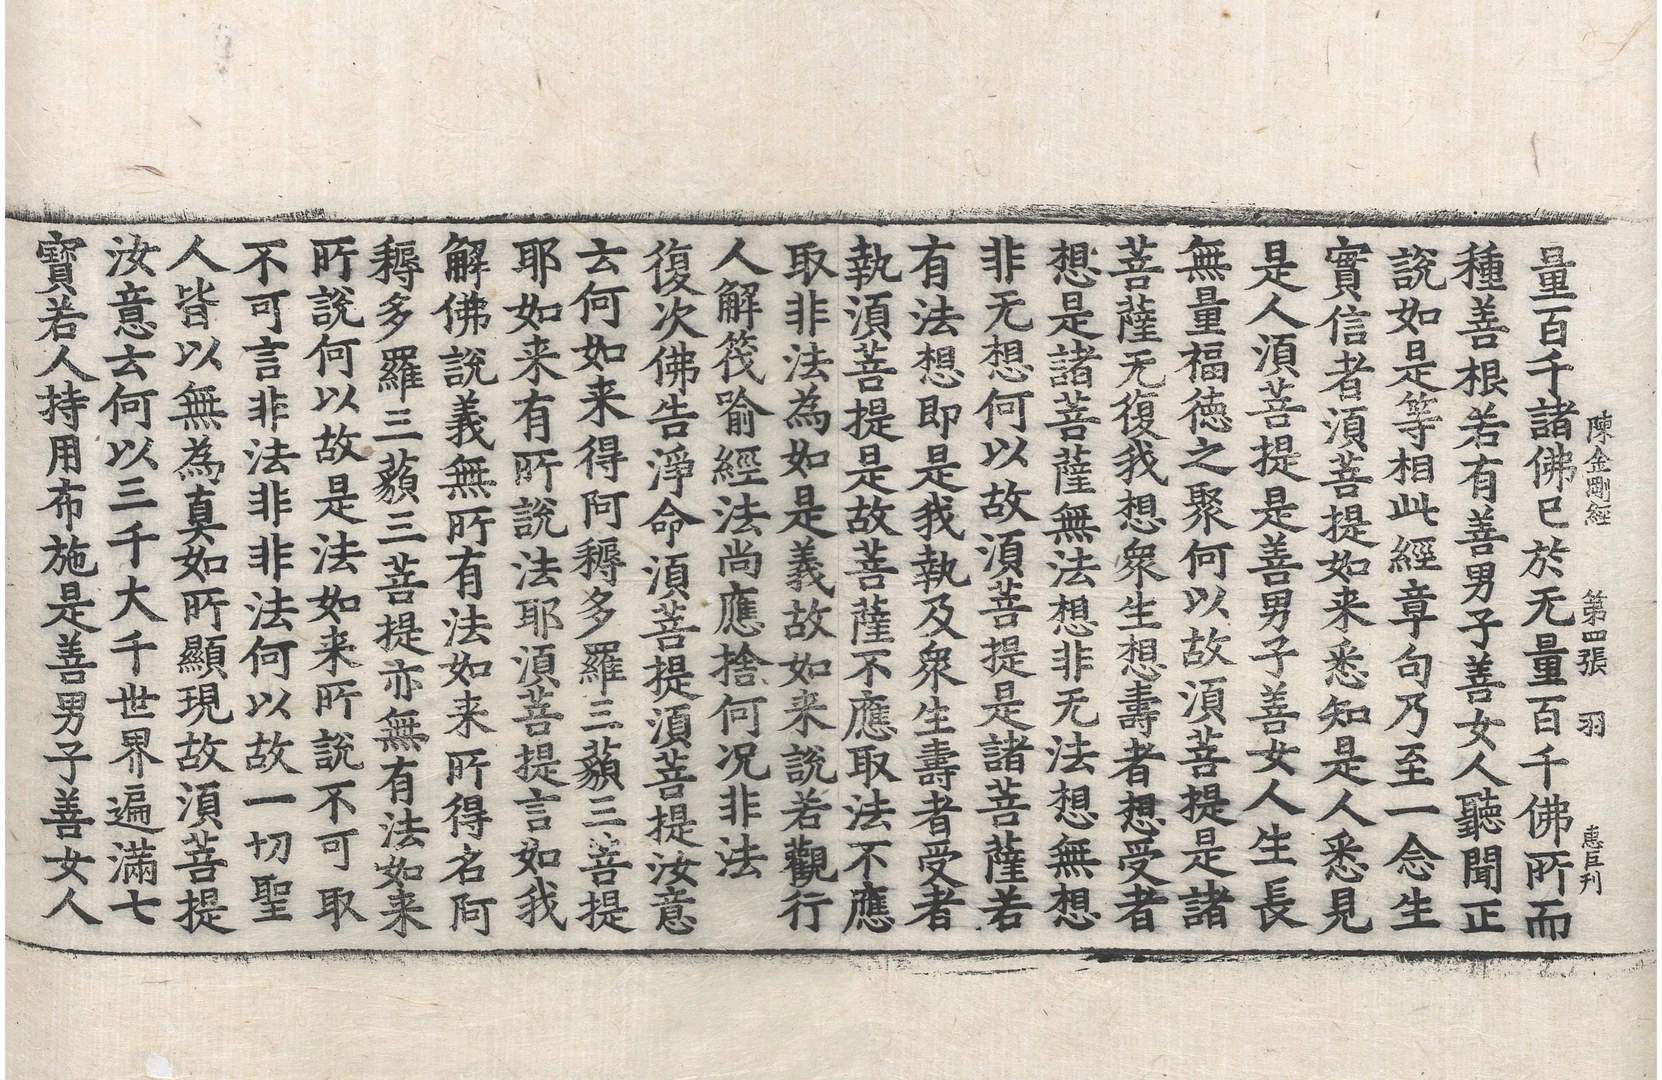 陳金剛經　第四張　羽　惠巨刋
量百千諸佛已於无量百千佛所而
種善根若有善男子善女人聽聞正
說如是等相此經章句乃至一念生
實信者湏菩提如来悉知是人悉見
是人湏菩提是善男子善女人生長
無量福德之聚何以故湏菩提是諸
菩薩无復我想衆生想壽者想受者
想是諸菩薩無法想非无法想無想
非无想何以故湏菩提是諸菩薩若
有法想即是我執及衆生壽者受者
執湏菩提是故菩薩不應取法不應
取非法為如是義故如来說若觀行
人解筏喻經法尚應捨何况非法
復次佛告淨命湏菩提湏菩提汝意
云何如来得阿耨多羅三藐三菩提
耶如来有所說法耶湏菩提言如我
解佛說義無所有法如来所得名阿
耨多羅三藐三菩提亦無有法如来
所說何以故是法如来所說不可取
不可言非法非非法何以故一切聖
人皆以無為真如所顯現故湏菩提
汝意云何以三千大千世界遍滿七
寶若人持用布施是善男子善女人